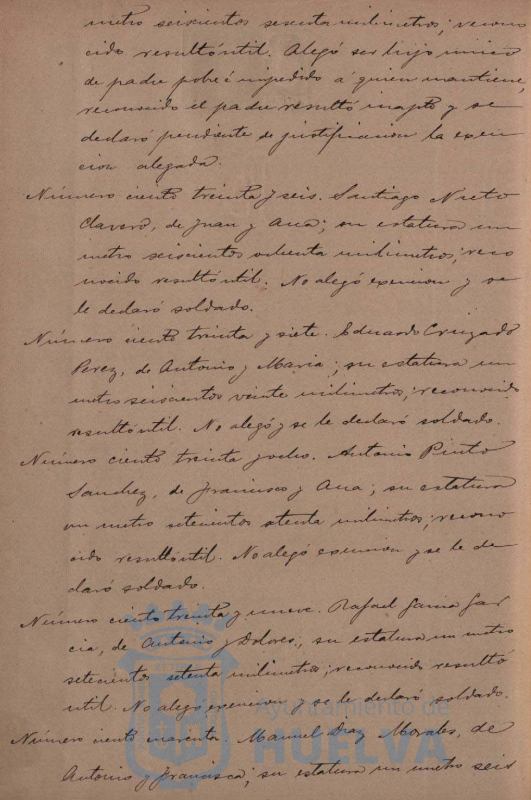 metro seiscientos sesenta milimetros; recono
cido resultó útil. Alegó ser hijo unico
de padre pobre é impedido á quien mantiene,
reconocido el padre resultó inapto y se
declaró pendiente de justificacion la exen
cion alegada.
Número ciento treinta y seis. Santiago Nieto
Clavero, de Juan y Ana; su estatura un
metro seiscientos ochenta milimetros; reco
nocido resultó útil. No alegó exencion y se
le declaró soldado.
Número ciento treinta y siete. Eduardo Cruzado
Perez, de Antonio y Maria; su estatura un
metro seiscientos veinte milimetros; reconocido
resultó útil. No alegó y se le declaró soldado.
Número ciento treinta y ocho. Antonio Pinto
Sanchez, de Francisco y Ana; su estatura
un metro setecientos setenta milimetros; recono
cido resultó útil. No alegó exencion y se le de
claró soldado.
Número ciento treinta y nueve. Rafael Gar
cia, de Antonio y Dolores; su estatura un metro
setecientos setenta milimetros; reconocido resultó
util. No alegó exencion y se le declaró soldado.
Número ciento cuarenta. Manuel Diaz Morales, de
Antonio y Francisca; su estatura un metro seis
Ayuntamiento de
HUELVA